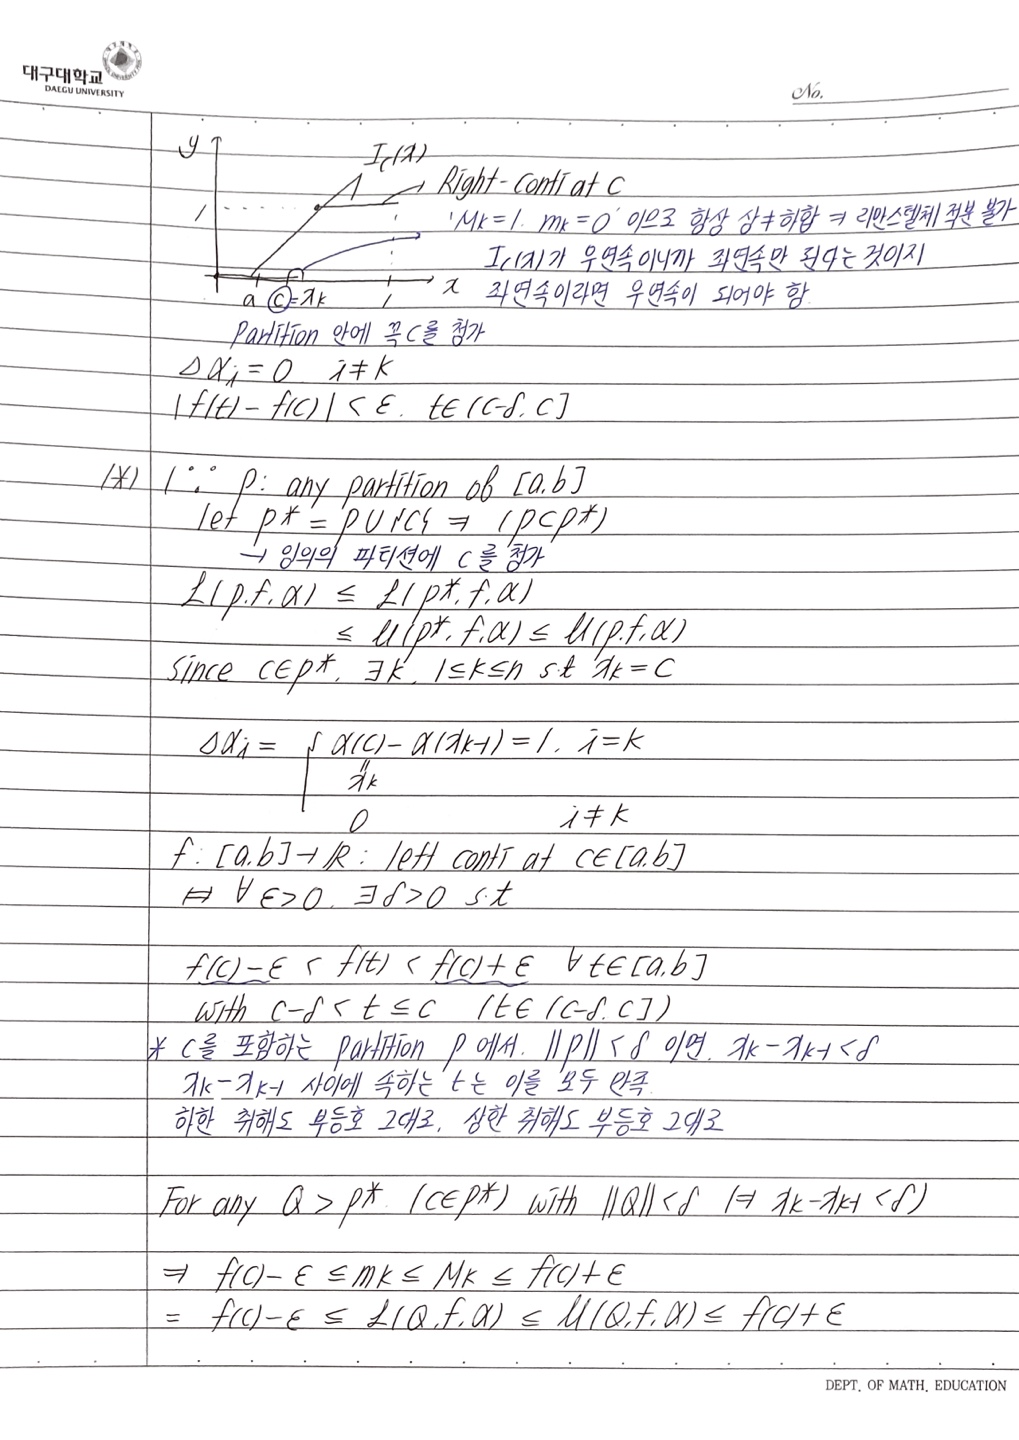 대구대학교
DAEGU UNIVERSITY
No.
y
I_c(x)
Right-conti at C
1
M_k=1. m_k=0 이므로 항상 상≠하합 ⇒ 리만스텔체 적분 불가
I_c(x)가 우연속이니까 좌연속만 된다는 것이지
a ⓒ=x_k 1 x
좌연속이라면 우연속이 되어야 함
Partition 안에 꼭 C를 첨가
Δα_i=0 i≠k
|f(t)-f(c)|<ε. t∈(c-δ.c]
(*) (∵ p: any partition of [a.b]
let p* = p∪{c} ⇒ (p⊂p*)
→ 임의의 파티션에 c를 첨가
L(p.f.α) ≤ L(p*.f.α)
≤ U(p*.f.α) ≤ U(p.f.α)
since c∈p*. ∃k. 1≤k≤n s.t x_k=c
Δα_i = { α(c)-α(x_k-1)=1. i=k
"
x_k
0 i≠k
f:[a.b]→ℝ: left conti at c∈[a.b]
⇔ ∀ε>0. ∃δ>0 s.t
f(c)-ε < f(t) < f(c)+ε ∀t∈[a.b]
with c-δ<t≤c (t∈(c-δ.c])
* C를 포함하는 partition p에서. ||p||<δ 이면. x_k-x_k-1<δ
x_k-x_k-1 사이에 속하는 t는 이를 모두 만족.
하한 취해도 부등호 그대로. 상한 취해도 부등호 그대로
For any Q>p*. (c∈p*) with ||Q||<δ (⇒ x_k-x_k-1<δ)
⇒ f(c)-ε ≤ m_k ≤ M_k ≤ f(c)+ε
= f(c)-ε ≤ L(Q.f.α) ≤ U(Q.f.α) ≤ f(c)+ε
DEPT. OF MATH. EDUCATION